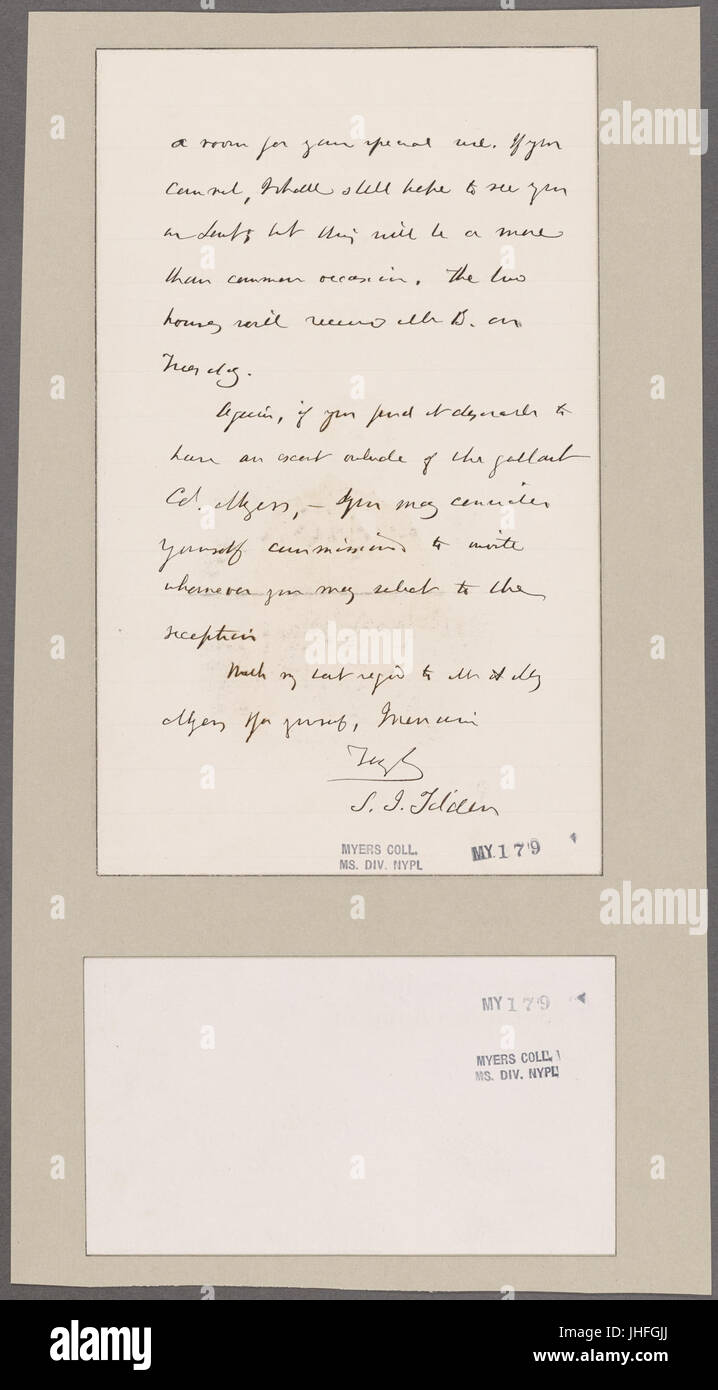 a room for your special use. If you
cannot, I shall still hope to see you
but this will be a more
than common occasion. The two
houses will receive Mr B. on
Tuesday.
Again, if you find it desirable to
have an escort outside of the gallant
Col. Myers, — you may consider
yourself commissioned to invite
whomever you may select to the
reception
With my best regards to Mr &
Myers & for yourself, I remain
S. J. Tilden
MYERS COLL.
MS. DIV. NYPL
MY 179
MY 179
MYERS COLL.
MS. DIV. NYPL
a alamy
a alamy
a alamy
alamy stock photo
Image ID: JHFGJJ
www.alamy.com